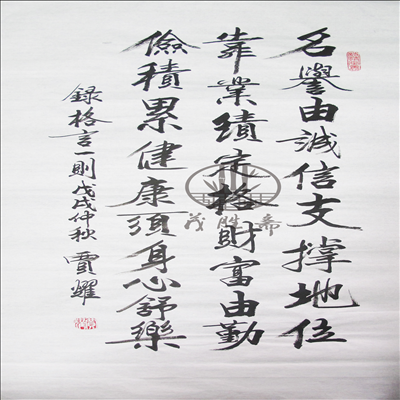 名譽由誠信支撐地位
靠業績定格財富由勤
儉積累健康須身心舒樂
録格言一則戊戌仲秋 賈耀
茂胜斋